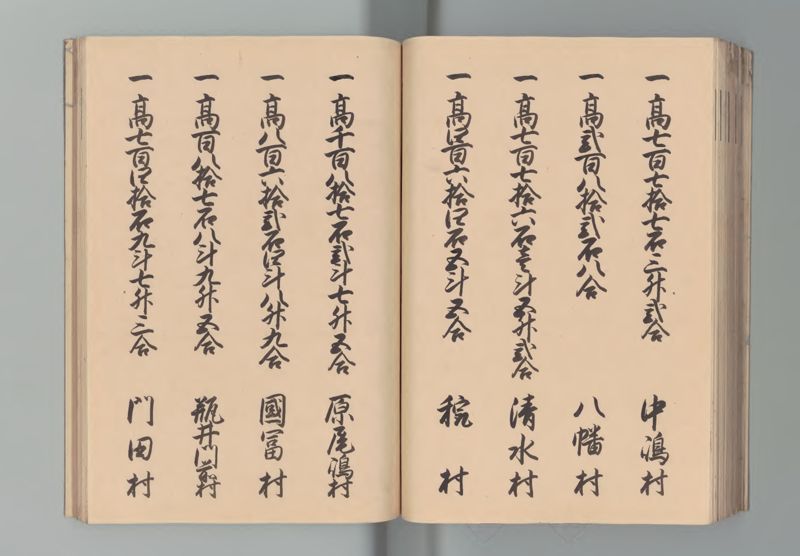 一 高七百七拾七石三升弐合 中嶋村
一 高弐百八拾弐石八合 八幡村
一 高七百七拾六石壱斗五升弐合 清水村
一 高四百六拾四石五斗五合 村
一 高千百八拾七石弐斗七升五合 原尾嶋村
一 高八百六拾弐石四斗八升九合 國冨村
一 高百八拾七石八斗九升五合 瓶井門前村
一 高七百四拾石九斗七升三合 門田村